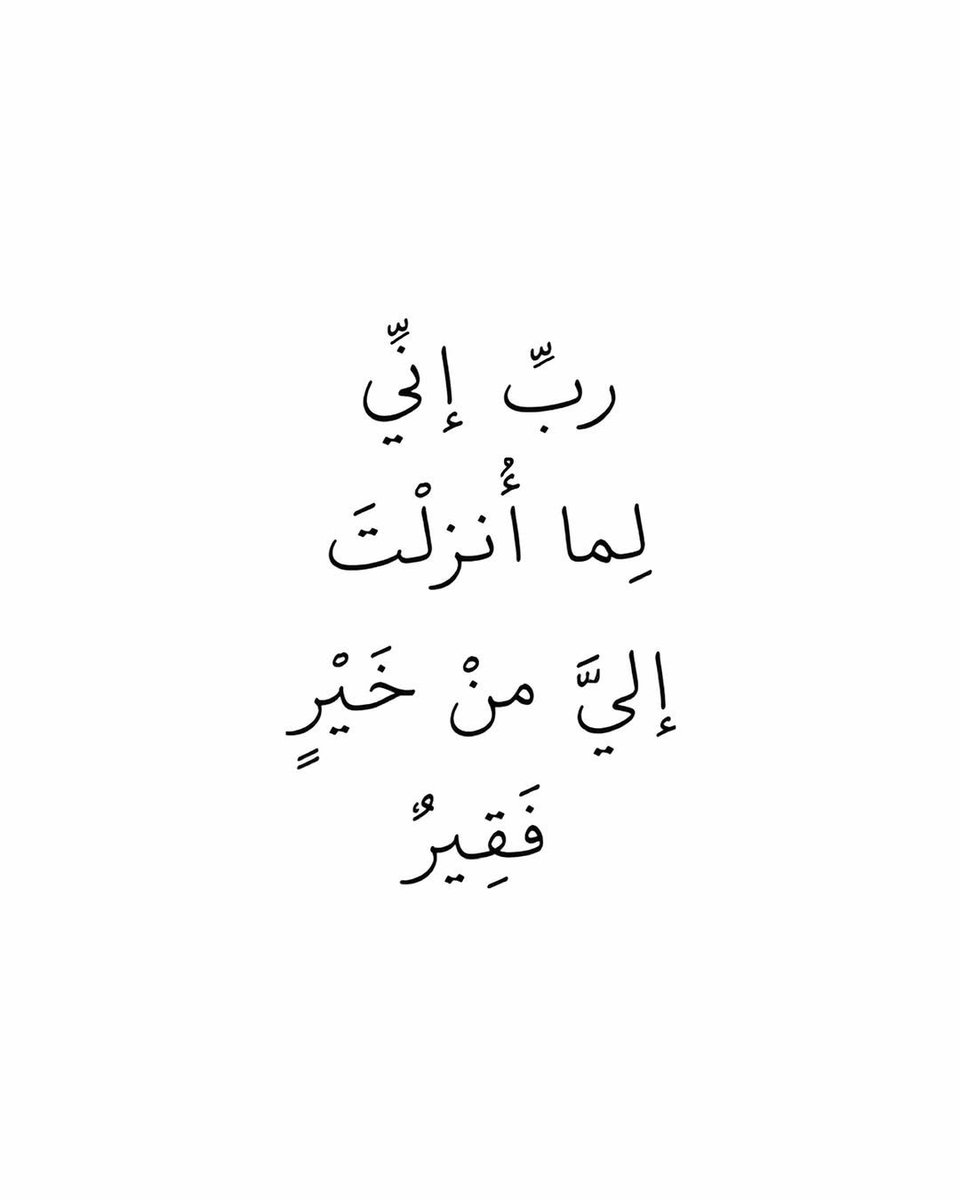 ربِّ إنِّي
لِما أُنزلْتَ
إليَّ منْ خَيْرٍ
فَقِيرٌ